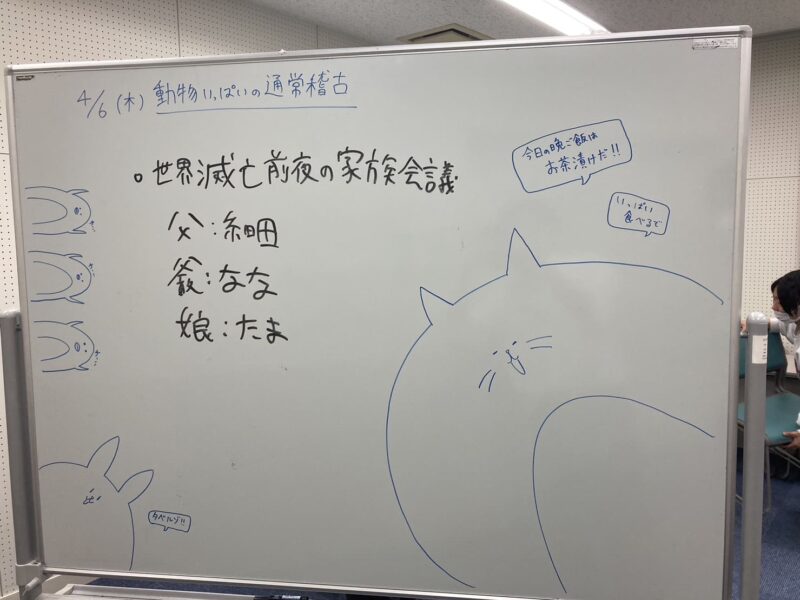 4/6 (木) 動物いっぱいの通常稽古
今日の晩ご飯は
お茶漬けだ!!
いっぱい
食べるぞ
。世界滅亡前夜の家族会議
父:細田
爺:なな
娘:たま
タベルゾ!!